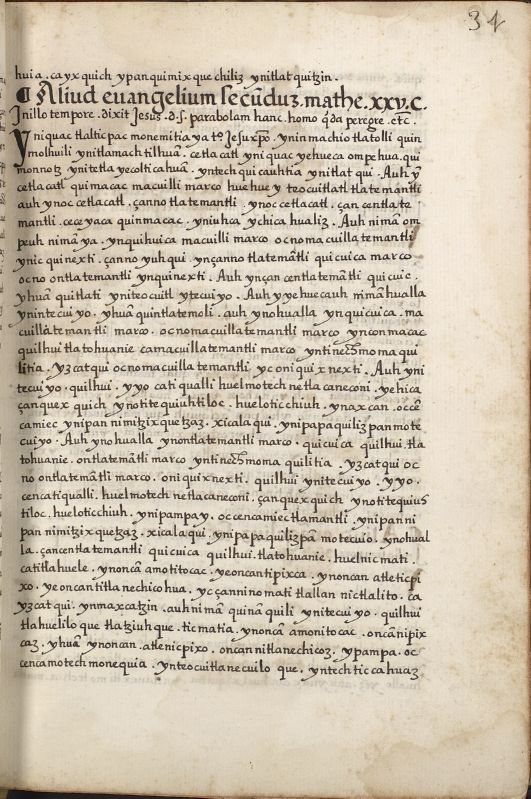 34
huia . ca yx quich ypan qui mix que chiliz ynitlat quitzin .
¶ Aliud evangelium secūduz . mathe . xxv . C .
In illo tempore . dixit Jesus . d . s . parabolam hanc . homo q̄da peregre . etc̄ .
Yniquac tlalticpac monemitia ya to Jesu xp̄o . ynin machiotlatolli quin
molhuili ynitlamachtilhuā . cetlacatl yniquac yehueca ompehua . qui
monnotz ynitetla yecolticahuā . yntech qui cauhtia ynitlat qui . Auh y
cetlacatl quimacac macuilli marco huehuey teocuitlatl tlatemantli
auh ynoc cetlacatl . çanno tlatemantli . ynoc cetlacatl . çan centlate
mantli . ceceyaca quinmacac . yniuhca ychicahualiz . Auh niman om
peuh nimā ya . ynquihuica macuilli marco oc no macuillatemantli
ynic quinexti . çanno yuhqui . ynçanno tlatemātli quicuica marco
oc no ontlatemantli ynquinexti . Auh ynçan centlatemātli quicuic .
yhuā quitlati yniteocuitl ytecuiyo . Auh y yehuecauh nimā hualla
ynintecuiyo . yhuā quintlatemoli . auh ynohualla ynquicuica . ma
cuillatemantli marco . oc no macuillatemantli marco ynconmacac
quilhui tlatohuanie camacuillatemantli marco yntinech moma qui
litia . yzcatqui oc no macuilla temantli yc oniquixnexti . Auh yni
tecuiyo . quilhui . yyo cati qualli huel motech netlacaneconi . yehica
çan quex quich ynotitequiuhtiloc . huel oticchiuh . ynaxcan . occē
camiec ynipan nimitzixquetzaz . xicalaqui . ynipapaquilizpan mote
cuiyo . Auh ynohualla ynontlatemantli marco . quicuica quilhui . tla
tohuanie . ontlatemātli marco yntinech moma quilitia . yzcatqui oc
no ontlatemātli marco . oniquixnexti . quilhui ynitecuiyo . yyo .
cencati qualli . huel motech netlacaneconi . çan quexquich ynotitequiuh
tiloc . huel oticchiuh . ynipampa y . occencamiec tlamantli . ynipan ni
pan nimitzixquetzaz . xicalaqui . ynipapaquilizpā motecuio . ynohual
la . çan centlatemantli quicuica quilhui . tlatohuanie . huel nicmati .
catitlahuele . ynoncā amotitocac . yeoncan tipixca . ynoncan atleticpi
xo . yeoncan titlanechicohua . yc çanninomati tlallan nictlalito . ca
yzcatqui . ynmaxcatzin . auh nimā quinā quili ynitecuiyo . quilhui
tlahuelilo que tlatziuh que . ticmatia . ynoncā amonitocac . oncā nipix
caz . yhuā ynoncan . atlenicpixo . oncan nitlanechicoz . ypampa . oc
cenca motech monequia . ynteocuitlanecuilo que . yntech ticcahuaz